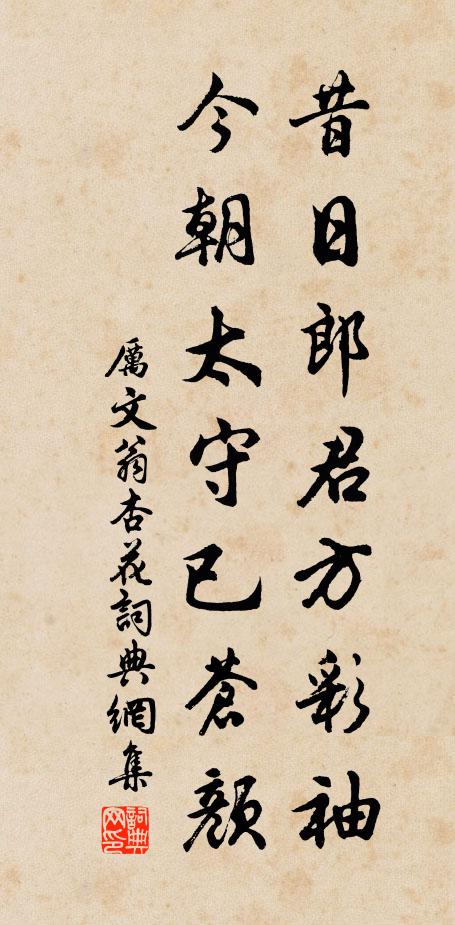 昔日郎君方彩袖
今朝太守已蒼顏
厲文翁杏花詞典網集
詞典網印